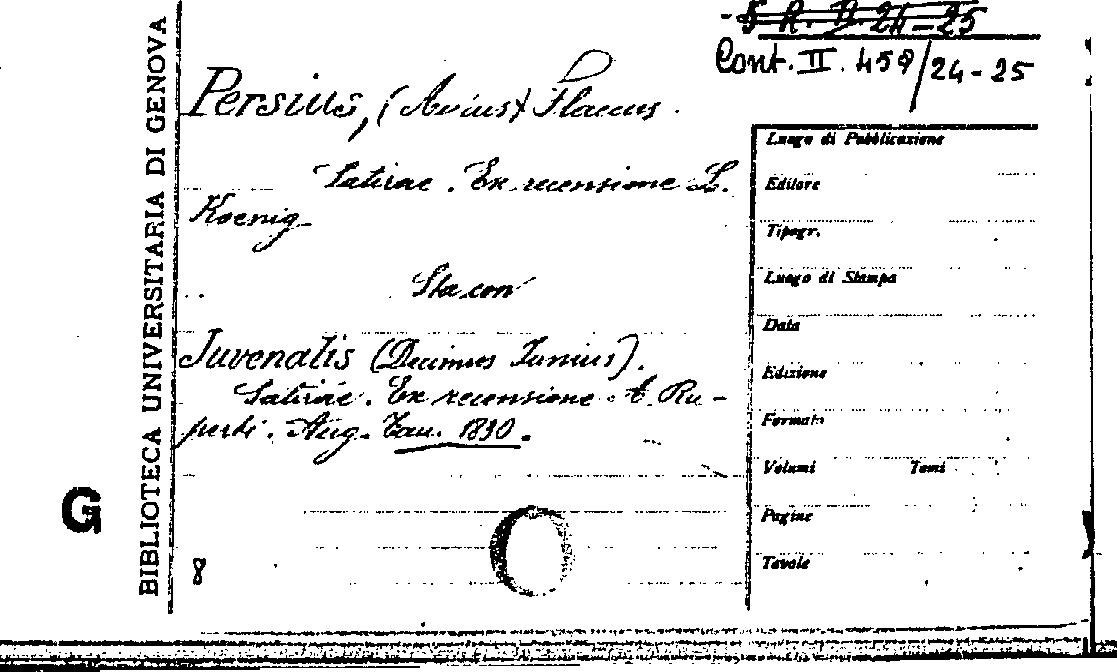 - 5 R. D. 24-25
Cont. II. 459/24-25
Persius, (Aulus) Flaccus.
Satirae. Ex recensione L.
Koenig
Sta con
Juvenalis (Decimus Junius).
Satirae. Ex recensione A. Ru-
perti. Aug. Tau. 1830.
8
BIBLIOTECA UNIVERSITARIA DI GENOVA
G
Luogo di Pubblicazione
Editore
Tipogr.
Luogo di Stampa
Data
Edizione
Formato
Volumi Tomi
Pagine
Tavole